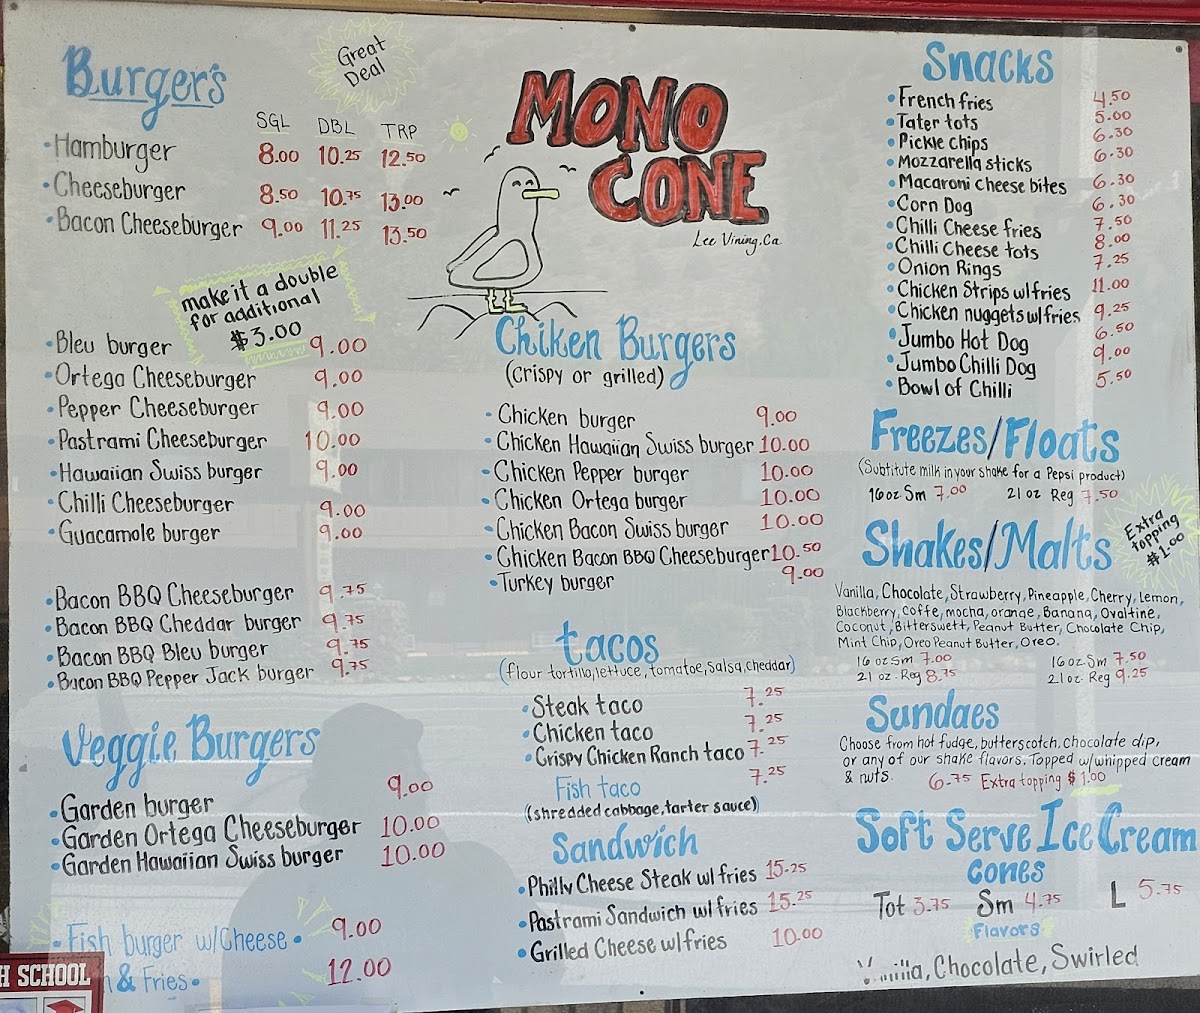 Burger's
Great
Deal
SGL DBL TRP
Hamburger 8.00 10.25 12.50
Cheeseburger 8.50 10.75 13.00
Bacon Cheeseburger 9.00 11.25 13.50
make it a double
for additional
$3.00
Bleu burger 9.00
Ortega Cheeseburger 9.00
Pepper Cheeseburger 9.00
Pastrami Cheeseburger 10.00
Hawaiian Swiss burger 9.00
Chilli Cheeseburger 9.00
Guacamole burger 9.00
Bacon BBQ Cheeseburger 9.75
Bacon BBQ Cheddar burger 9.75
Bacon BBQ Bleu burger 9.75
Bacon BBQ Pepper Jack burger 9.75
Veggie Burgers
Garden burger 9.00
Garden Ortega Cheeseburger 10.00
Garden Hawaiian Swiss burger 10.00
Fish burger w/Cheese 9.00
& Fries 12.00
H SCHOOL
MONO
CONE
Lee Vining, Ca
Chiken Burgers
(Crispy or grilled)
Chicken burger 9.00
Chicken Hawaiian Swiss burger 10.00
Chicken Pepper burger 10.00
Chicken Ortega burger 10.00
Chicken Bacon Swiss burger 10.00
Chicken Bacon BBQ Cheeseburger 10.50
Turkey burger 9.00
tacos
(flour tortilla, lettuce, tomatoe, salsa, cheddar)
Steak taco 7.25
Chicken taco 7.25
Crispy Chicken Ranch taco 7.25
Fish taco 7.25
(shredded cabbage, tarter sauce)
Sandwich
Philly Cheese Steak w/ fries 15.25
Pastrami Sandwich w/ fries 15.25
Grilled Cheese w/ fries 10.00
Snacks
French fries 4.50
Tater tots 5.00
Pickle chips 6.30
Mozzarella sticks 6.30
Macaroni cheese bites 6.30
Corn Dog 6.30
Chilli Cheese fries 7.50
Chilli Cheese tots 8.00
Onion Rings 7.25
Chicken Strips w/ fries 11.00
Chicken nuggets w/ fries 9.25
Jumbo Hot Dog 6.50
Jumbo Chilli Dog 9.00
Bowl of Chilli 5.50
Freezes/Floats
(Subtitute milk in your shake for a Pepsi product)
16 oz Sm 7.00 21 oz Reg 7.50
Shakes/Malts
Extra
topping
$1.00
Vanilla, Chocolate, Strawberry, Pineapple, Cherry, Lemon,
Blackberry, Coffe, mocha, orange, Banana, Ovaltine,
Coconut, Bitterswett, Peanut Butter, Chocolate Chip,
Mint Chip, Oreo Peanut Butter, Oreo.
16 oz Sm 7.00 16 oz Sm 7.50
21 oz. Reg 8.75 21 oz. Reg 9.25
Sundaes
Choose from hot fudge, butterscotch, chocolate dip,
or any of our shake flavors. Topped w/whipped cream
& nuts. 6.75 Extra topping $1.00
Soft Serve Ice Cream
cones
Tot 3.75 Sm 4.75 L 5.75
Flavors
Vanilla, Chocolate, Swirled